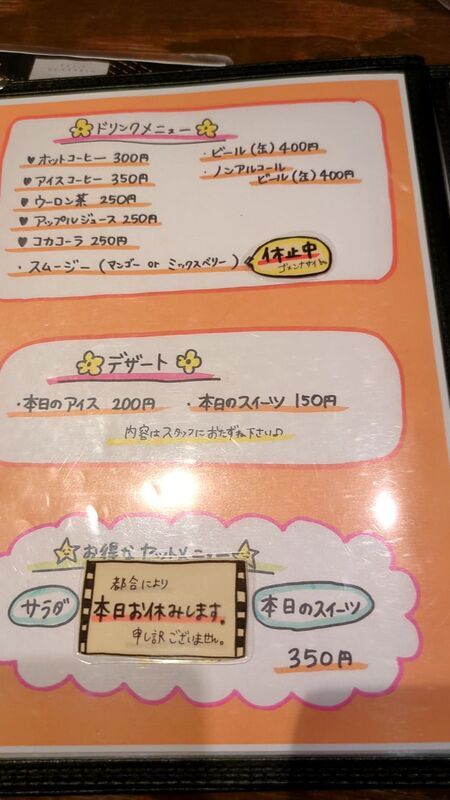 ドリンクメニュー
♥ ホットコーヒー 300円
♥ アイスコーヒー 350円
♥ ウーロン茶 250円
♥ アップルジュース 250円
♥ コカコーラ 250円
・ビール(缶) 400円
・ノンアルコール
ビール(缶) 400円
・スムージー (マンゴー or ミックスベリー)
休止中
ゴメンナサイ
デザート
・本日のアイス 200円
・本日のスイーツ 150円
内容はスタッフにおたずね下さい♪
お得なセットメニュー
サラダ
都合により
本日お休みします。
申し訳ございません。
本日のスイーツ
350円